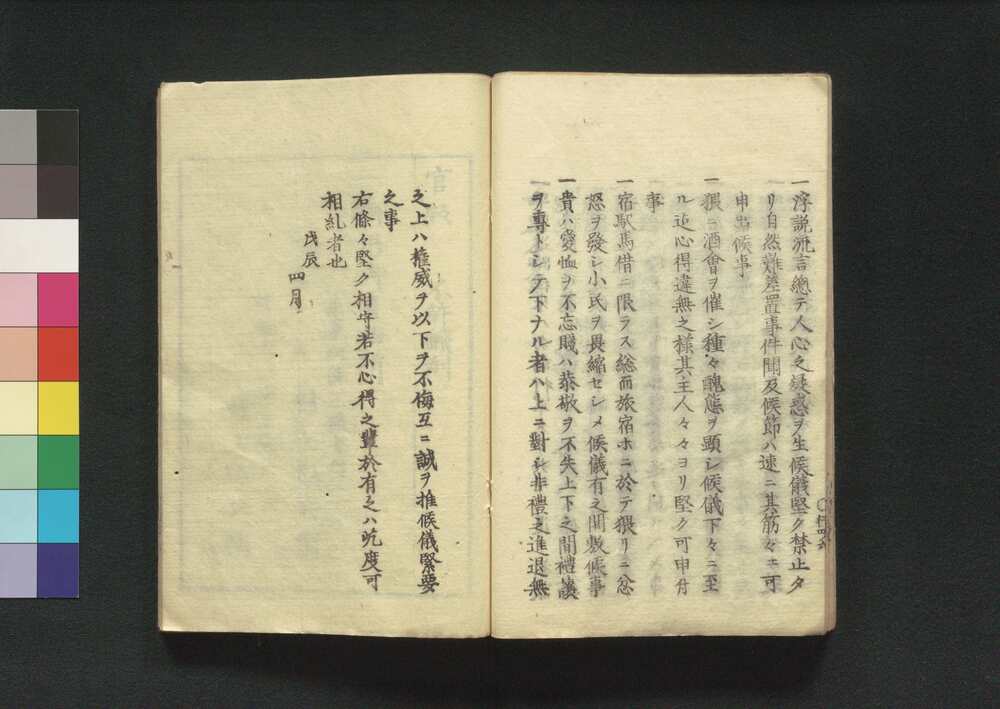 一浮説流言總テ人心之疑惑ヲ生候儀堅ク禁止タ
リ自然難差置事件聞及候節ハ速ニ其筋々ニ可
申出候事
一猥ニ酒會ヲ催シ種々醜態ヲ顕シ候儀下々ニ至
ル迄心得違無之様其主人々々ヨリ堅ク可申付
事
一宿駅馬借ニ限ラス総而旅宿ホニ於テ猥リニ忿
怒ヲ發シ小民ヲ畏縮セシメ候儀有之間敷候事
一貴ハ愛恤ヲ不忘賎ハ恭敬ヲ不失上下之間禮譲
ヲ専トシテ下ナル者ハ上ニ對シ非禮之進退無
之上ハ権威ヲ以下ヲ不侮互ニ誠ヲ推候儀緊要
之事
右條々堅ク相守若不心得之輩於有之ハ屹度可
相糺者也
戊辰
四月